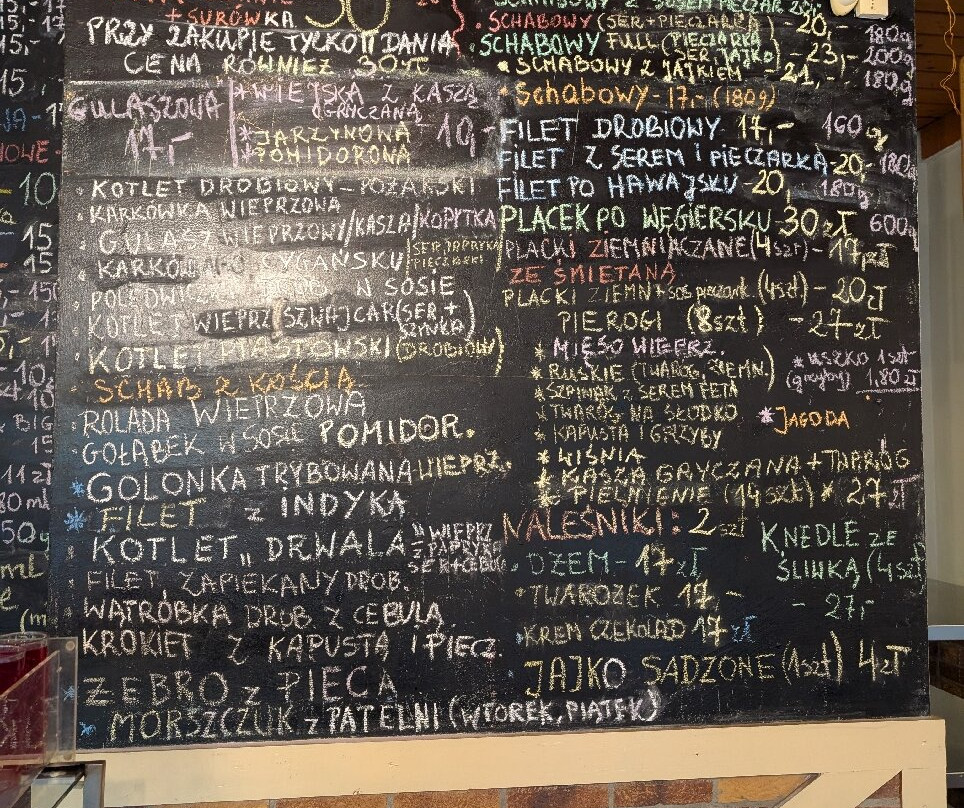 + SURÓWKA 30
PRZY ZAKUPIE TYLKO II DANIA
CENA RÓWNIEŻ 30 zł
GULASZOWA
17,-
* WIEJSKA Z KASZĄ
GRYCZANĄ
* JARZYNOWA
* POMIDOROWA
10,-
KOTLET DROBIOWY - POŻARSKI
KARKÓWKA WIEPRZOWA
GULASZ WIEPRZOWY/KASZA/KOPYTKA
KARKÓWKA PO CYGAŃSKU SER, PAPRYKA
PIECZARKI
W SOSIE
KOTLET WIEPRZ (SZWAJCAR (SER +
SZYNKA)
KOTLET PIASTOWSKI (DROBIOW)
SCHAB Z KOŚCIĄ
ROLADA WIEPRZOWA
GOŁĄBEK W SOSIE POMIDOR.
* GOLONKA TRYBOWANA WIEPRZ.
* FILET Z INDYKA
KOTLET „DRWALA" WIEPRZ
Z PAPRYKĄ
SER+CEBULA
FILET ZAPIEKANY DROB.
WĄTRÓBKA DROB Z CEBULĄ
KROKIET Z KAPUSTĄ I PIECZ.
* ŻEBRO Z PIECA
* MORSZCZUK Z PATELNI (WTOREK, PIĄTEK)
SCHABOWY (SER+PIECZARKA) - 20,- 180g
SCHABOWY FULL (PIECZARKA
SER, JAJKO) - 23,- 200g
SCHABOWY Z JAJKIEM - 21,- 180g
Schabowy - 17,- (180g)
FILET DROBIOWY 17,- 160 g
FILET Z SEREM I PIECZARKĄ - 20,- 180g
FILET PO HAWAJSKU - 20,- 180g
PLACEK PO WĘGIERSKU 30 zł 600g
PLACKI ZIEMNIACZANE (4szt) - 17,zł
ZE ŚMIETANĄ
PLACKI ZIEMN + sos pieczark. (4szt) - 20 zł
PIEROGI (8szt) - 27 zł
* MIĘSO WIEPRZ.
* RUSKIE (TWARÓG, ZIEMN.)
* SZPINAK Z SEREM FETA
* TWARÓG NA SŁODKO
* KAPUSTA I GRZYBY
* WIŚNIA
* KASZA GRYCZANA + TWARÓG
* USZKO 1szt
(grzyby) 1,80 zł
* JAGODA
* PIELMIENIE (14szt) * 27 zł
NALEŚNIKI: 2 szt
DŻEM - 17 zł
TWAROŻEK 17,-
KREM CZEKOLAD 17 zł
KNEDLE ZE
ŚLIWKĄ (4szt)
- 27,-
JAJKO SADZONE (1szt) 4 zł